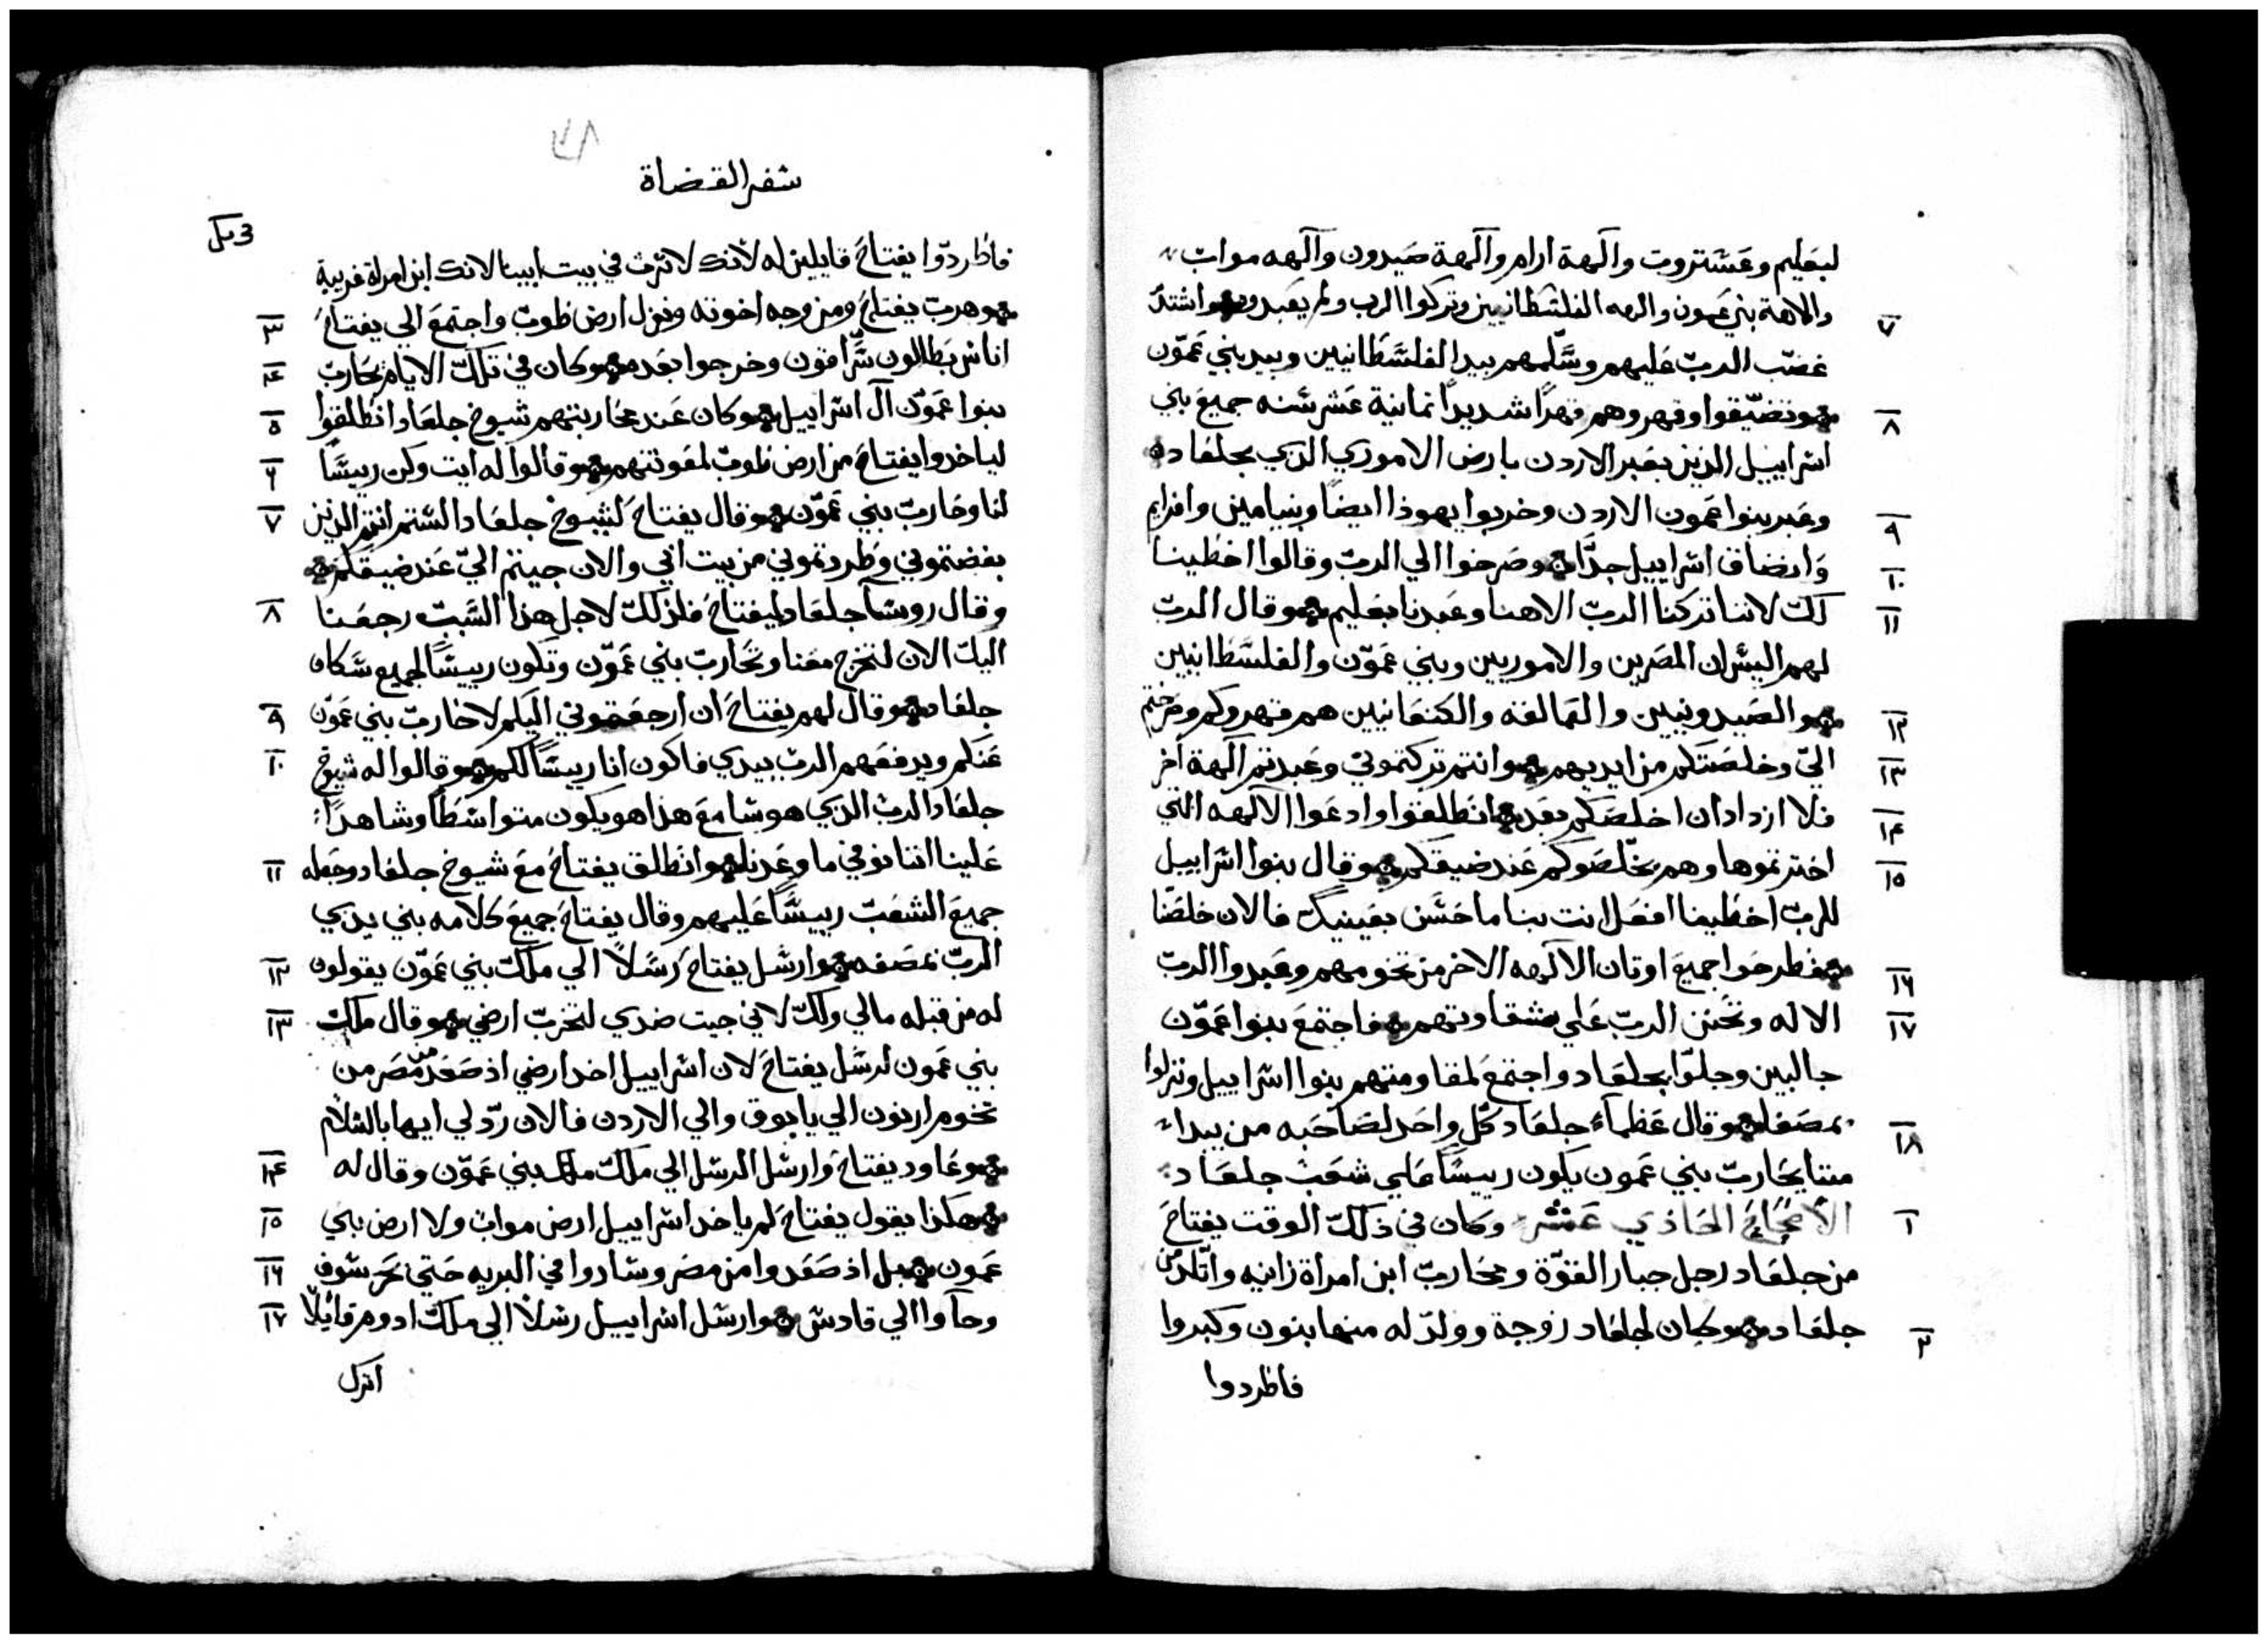 لبعليم وعشتروت والهة ارام والهة صيدون والهه مواب
والاهة بني عمون والهه الفلسطانيين وتركوا الرب ولم يعبدوه واشتد
٧
غضب الرب عليهم وسلمهم بيد الفلسطانيين وبيد بني عمون
وتضيقوا وقهروهم قهرًا شديدًا ثمانية عشر سنه جميع بني
٨
اسراييل الذين بعبر الاردن بارض الاموري الذي بجلعاد
وعبر بنوا عمون الاردن وخربوا يهوذا ايضًا وبنيامين وافرايم
٩
وانضاق اسراييل جدًا وصرخوا الي الرب وقالوا اخطينا
١٠
لك لاننا تركنا الرب الاهنا وعبدنا بعليم وقال الرب
١١
لهم اليس ان المصريين والاموريين وبني عمون والفلسطانيين
والصيدونيين والعمالقه والكنعانيين هم قهروكم وصرختم
١٢
الي وخلصتكم من ايديهم وانتم تركتموني وعبدتم الهة اخر
١٣
فلا ازداد ان اخلصكم بعد انطلقوا وادعوا الالهه التي
١٤
اخترتموها وهم يخلصوكم عند ضيقكم وقال بنوا اسراييل
١٥
للرب اخطينا افعل انت بنا ما حسن بعينيك فالان خلصنا
فطرحوا جميع اوتان الالهه الاخر من تخومهم وعبدوا الرب
١٦
الاله وتحنن الرب علي شقاوتهم فاجتمع بنوا عمون
١٧
جالبين وحلوا بجلعاد واجتمع لمقاومتهم بنوا اسراييل ونزلوا
بمصفا وقال عظماء جلعاد كل واحد لصاحبه من يبدا
١٨
منا يحارب بني عمون يكون رييسًا علي شعب جلعاد
الاصحاح الحادي عشر وكان في ذلك الوقت يفتاح
١
من جلعاد رجل جبار القوة ومحارب ابن امراة زانيه واتلد من
جلعاد وكان لجلعاد زوجة وولد له منها بنون وكبروا
٢
فاطردوا
٧٨
سفر القضاة
فاطردوا يفتاح قايلين له لانك لا ترث في بيت ابينا لانك ابن امراة غريبة
وهرب يفتاح ومن وجه اخوته ونزل ارض طوب واجتمع الي يفتاح
٣
اناس بطالون سراقون وخرجوا بعده وكان في تلك الايام يحارب
٤
بنوا عمون ال اسراييل وكان عند محاربتهم شيوخ جلعاد انطلقوا
٥
لياخدوا يفتاح من ارض طوب لمعونتهم وقالوا له ايت وكن رييسًا
٦
لنا وحارب بني عمون وقال يفتاح لشيوخ جلعاد الستم انتم الذين
٧
بغضتموني وطردتموني من بيت ابي والان جيتم الي عند ضيقكم
وقال روسا جلعاد ليفتاح فلذلك لاجل هذا السبب رجعنا
٨
اليك الان لتخرج معنا وتحارب بني عمون وتكون رييسًا لجميع سكان
جلعاد وقال لهم يفتاح ان ارجعتموني اليكم لاحارب بني عمون
٩
عنكم ويدفعهم الرب بيدي فاكون انا رييسًا لكم وقالوا له شيوخ
١٠
جلعاد الرب الذي هو سامع هذا هو يكون متواسطًا وشاهدًا
علينا اننا نوفي ما وعدنا وانطلق يفتاح مع شيوخ جلعاد وجعله
١١
جميع الشعب رييسًا عليهم وقال يفتاح جميع كلامه بني يدي
الرب بمصفه وارسل يفتاح رسلًا الي ملك بني عمون يقولون
١٢
له من قبله مالي ولك لاني جيت ضدي لتخرب ارضي وقال ملك
١٣
بني عمون لرسل يفتاح لان اسراييل اخد ارضي اذ صعد من مصر من
تخوم ارنون الي يابوق والي الاردن فالان رد لي ايها بالسلام
وعاود يفتاح وارسل الرسل الي ملك بني عمون وقال له
١٤
هكذا يقول يفتاح لم ياخد اسراييل ارض مواب ولا ارض بني
١٥
عمون بل اذ صعدوا من مصر وساروا في البريه حتي بحر سوف
١٦
وجآوا الي قادس وارسل اسراييل رسلًا الي ملك ادوم قايلًا
١٧
اترك